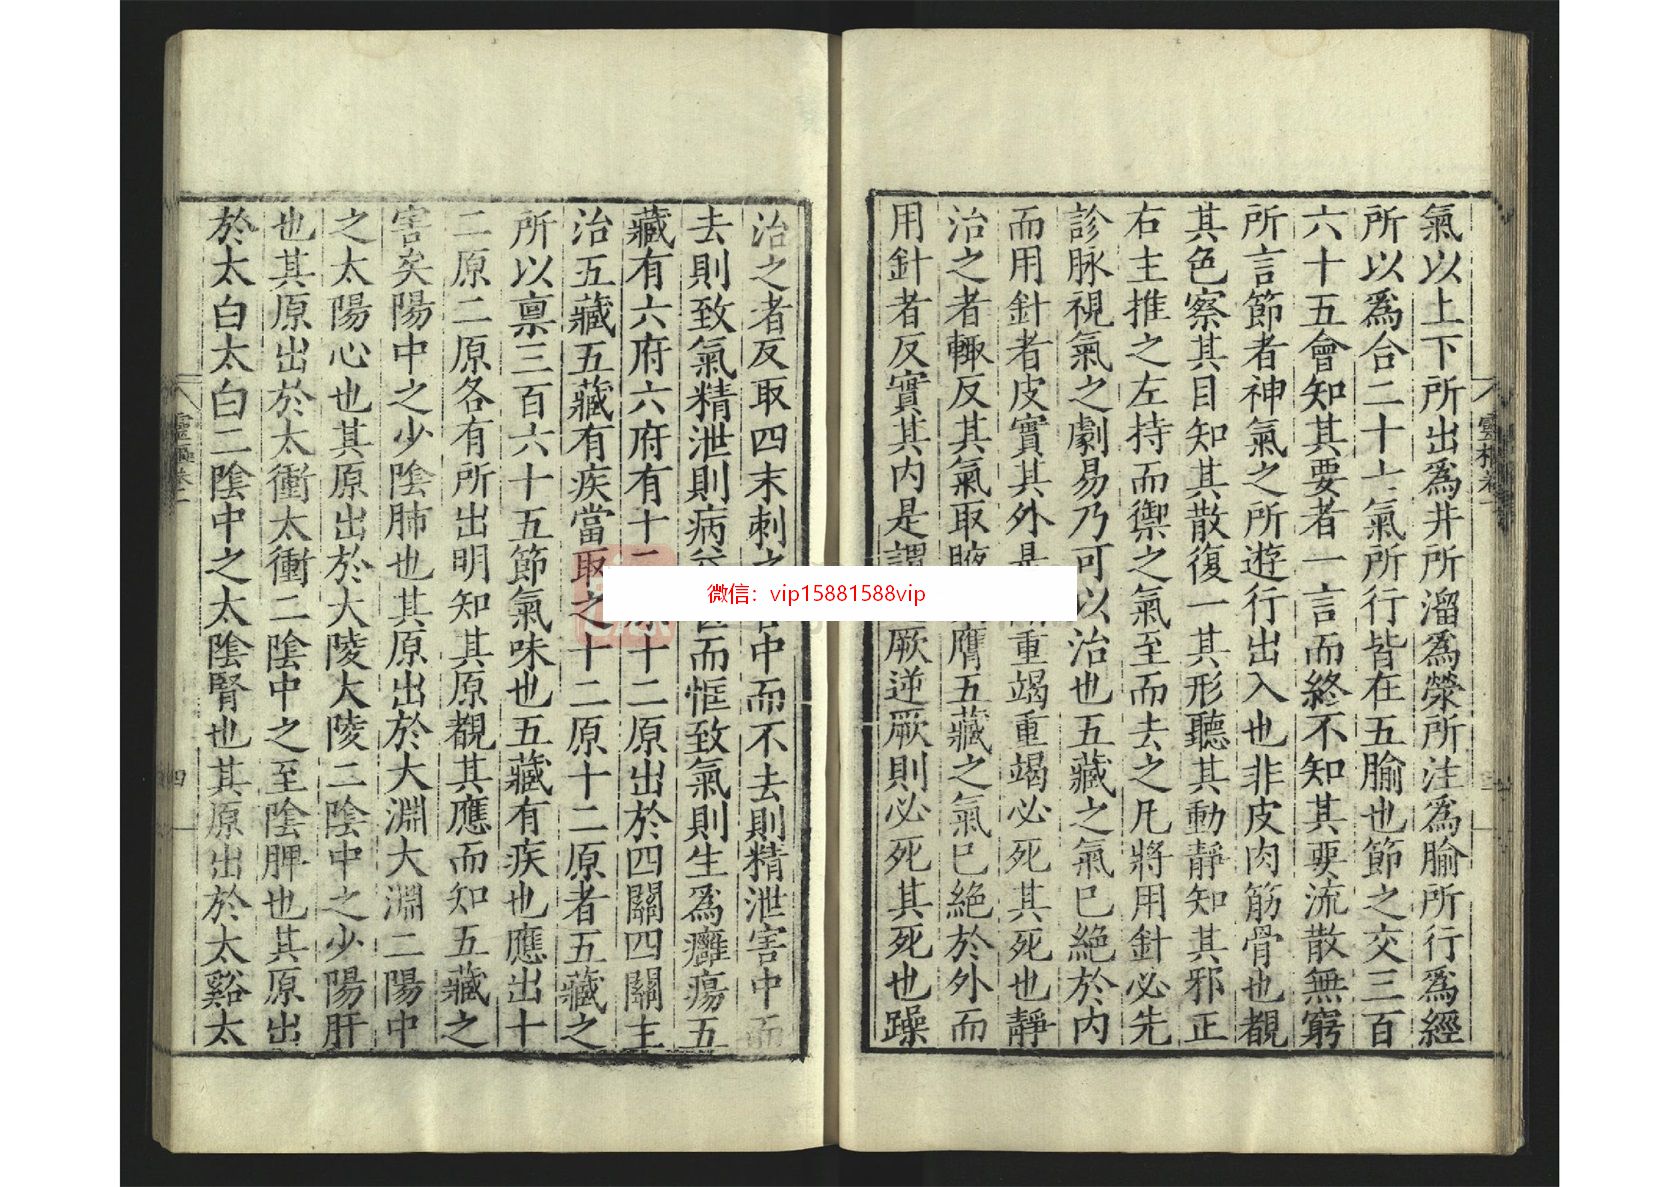 靈樞卷一
三
氣以上下所出爲井所溜爲滎所注爲腧所行爲經
所以爲合二十七氣所行皆在五腧也節之交三百
六十五會知其要者一言而終不知其要流散無窮
所言節者神氣之所遊行出入也非皮肉筋骨也覩
其色察其目知其散復一其形聽其動靜知其邪正
右主推之左持而禦之氣至而去之凡將用針必先
診脉視氣之劇易乃可以治也五藏之氣已絕於內
而用針者皮實其外是重竭重竭必死其死也靜
治之者輙反其氣取腋膺五藏之氣已絕於外而
用針者反實其內是謂厥逆厥則必死其死也躁
治之者反取四末刺之害中而不去則精泄害中而
去則致氣精泄則病益甚而恇致氣則生爲癰瘍五
藏有六府六府有十二十二原出於四關四關主
治五藏五藏有疾當取之十二原十二原者五藏之
所以禀三百六十五節氣味也五藏有疾也應出十
二原二原各有所出明知其原覩其應而知五藏之
害矣陽中之少陰肺也其原出於大淵大淵二陽中
之太陽心也其原出於大陵大陵二陰中之少陽肝
也其原出於太衝太衝二陰中之至陰脾也其原出
於太白太白二陰中之太陰腎也其原出於太谿太
靈樞卷一
四
微信：vip15881588vip